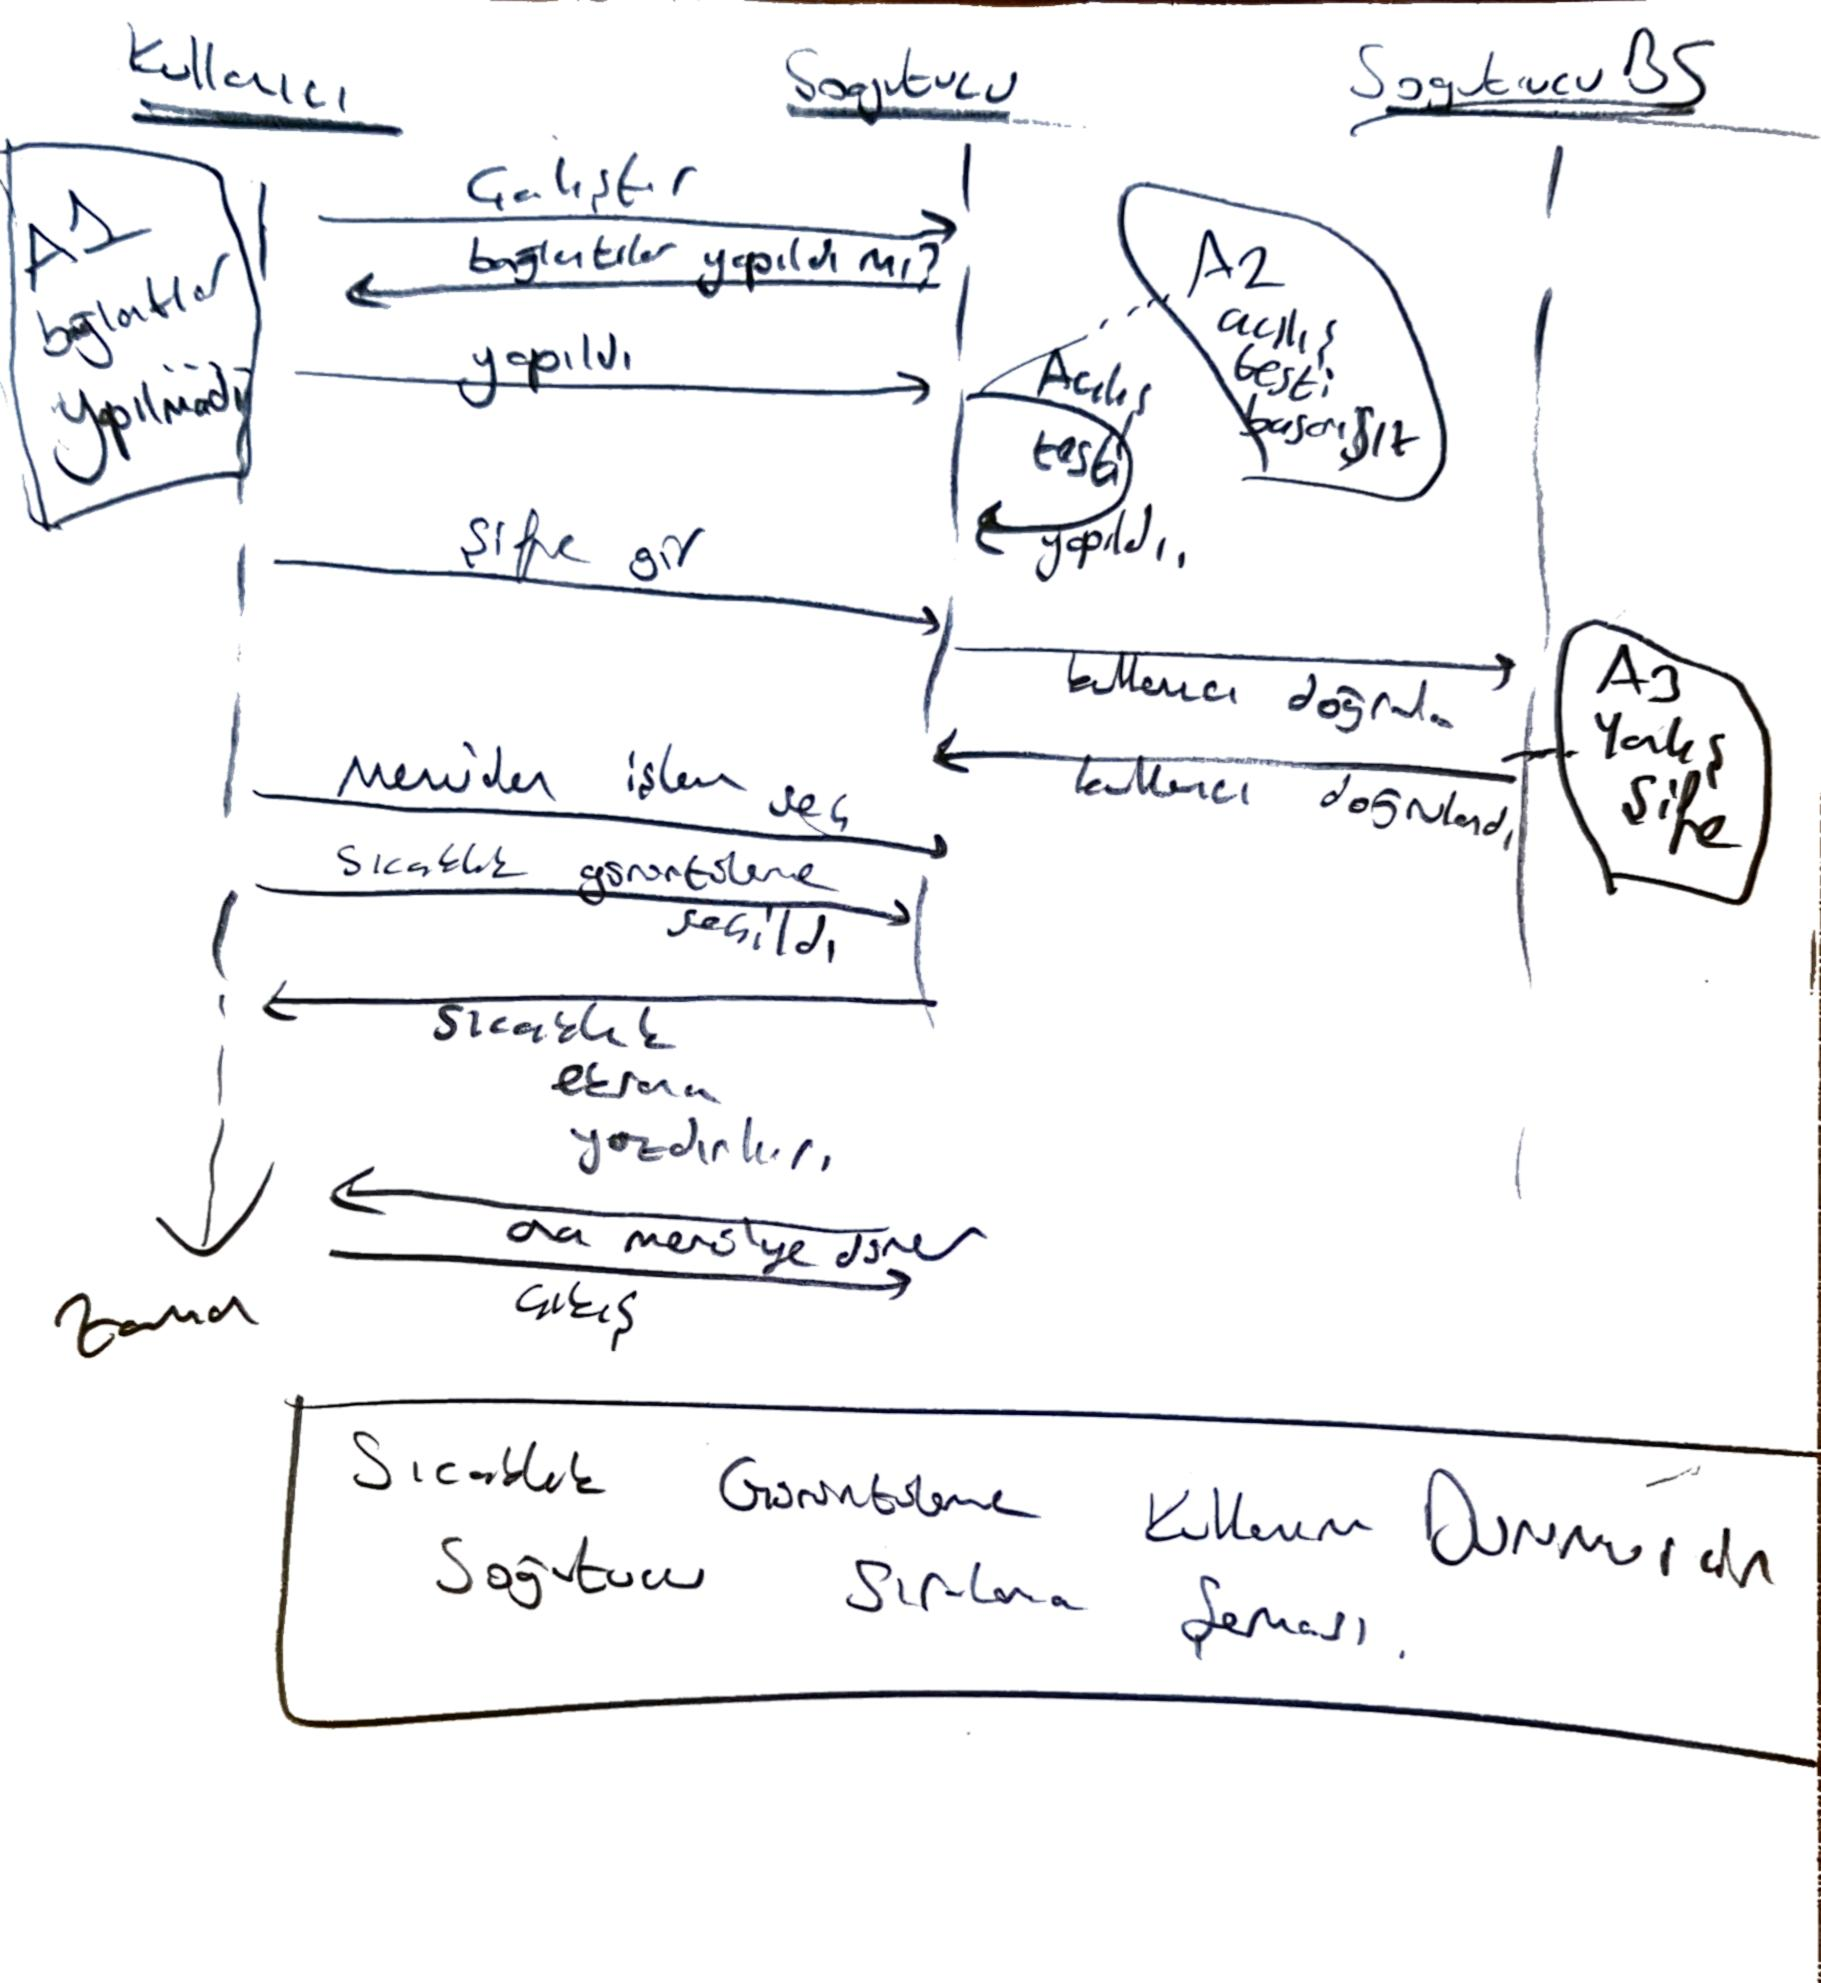 Kullanıcı
Sogutucu
Sogutucu BS
Çalıştır
bağlantılar yapıldı mı?
yapıldı
A1
bağlantılar
yapılmadı
A2
acılış
testi
başarısız
Acılış
testi
yapıldı.
Şifre gir
kullanıcı doğrula
kullanıcı doğrulandı
A3
Yanlış
Şifre
Menüden işlem seç
Sıcaklık görüntüleme
seçildi
Sıcaklık
ekrana
yazdırılır.
ana menüye döner
Çıkış
Zaman
Sıcaklık Görüntüleme Kullanım Durumu için
Soğutucu Sıralama Şeması.